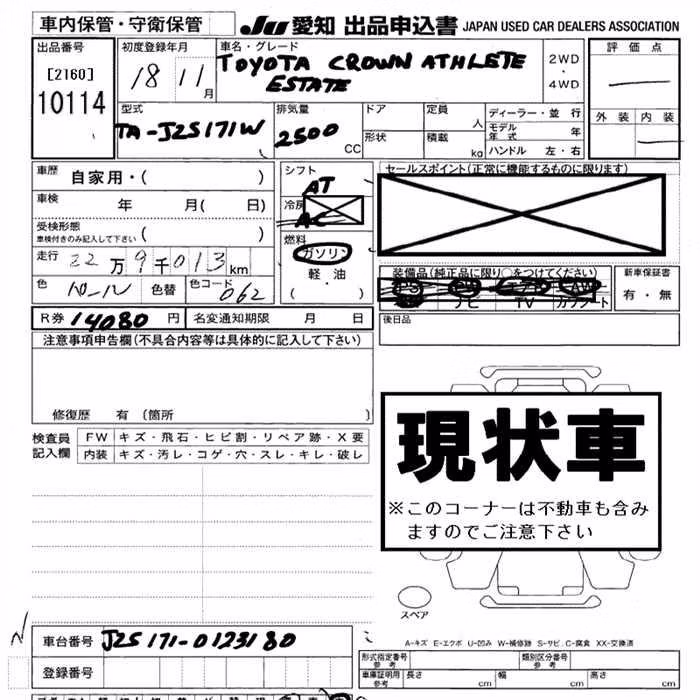 車内保管・守衛保管 JU 愛知 出品申込書 JAPAN USED CAR DEALERS ASSOCIATION
出品番号 初度登録年月 車名・グレード 評価点
[2160] 18 11月 TOYOTA CROWN ATHLETE 2WD
10114 ESTATE ・ 4WD
外装 内装
型式 排気量 ドア 定員 人 ディーラー・並行
TA-JZS171W 2500 CC 形状 積載 kg モデル年式 年
ハンドル 左・右
車歴 自家用・( ) シフト AT セールスポイント(正常に機能するものに限ります)
車検 年 月( 日) 冷房 AC
受検形態 ( )
車検付きのみ記入して下さい
燃料
走行 22万9千013km ガソリン
軽・油
( )
装備品(純正品に限り○をつけてください) 新車保証書
PS PW エアB AW 有・無
ナビ TV カワシート
色 色替 色コード 062
R券 14080円 名変通知期限 月 日 後日品
注意事項申告欄(不具合内容等は具体的に記入して下さい)
修復歴 有(箇所 )
現状車
※このコーナーは不動車も含み
ますのでご注意下さい
検査員 FW キズ・飛石・ヒビ割・リペア跡・X要
記入欄 内装 キズ・汚レ・コゲ・穴・スレ・キレ・破レ
スペア
A-キズ E-エクボ U-凹み W-補修跡 S-サビ、C-腐食 XX-交換済
車台番号 JZS171-0123180
登録番号
形式指定番号 参考 類別区分番号 参考
車庫証明用 参考 長さ cm 幅 cm 高さ cm